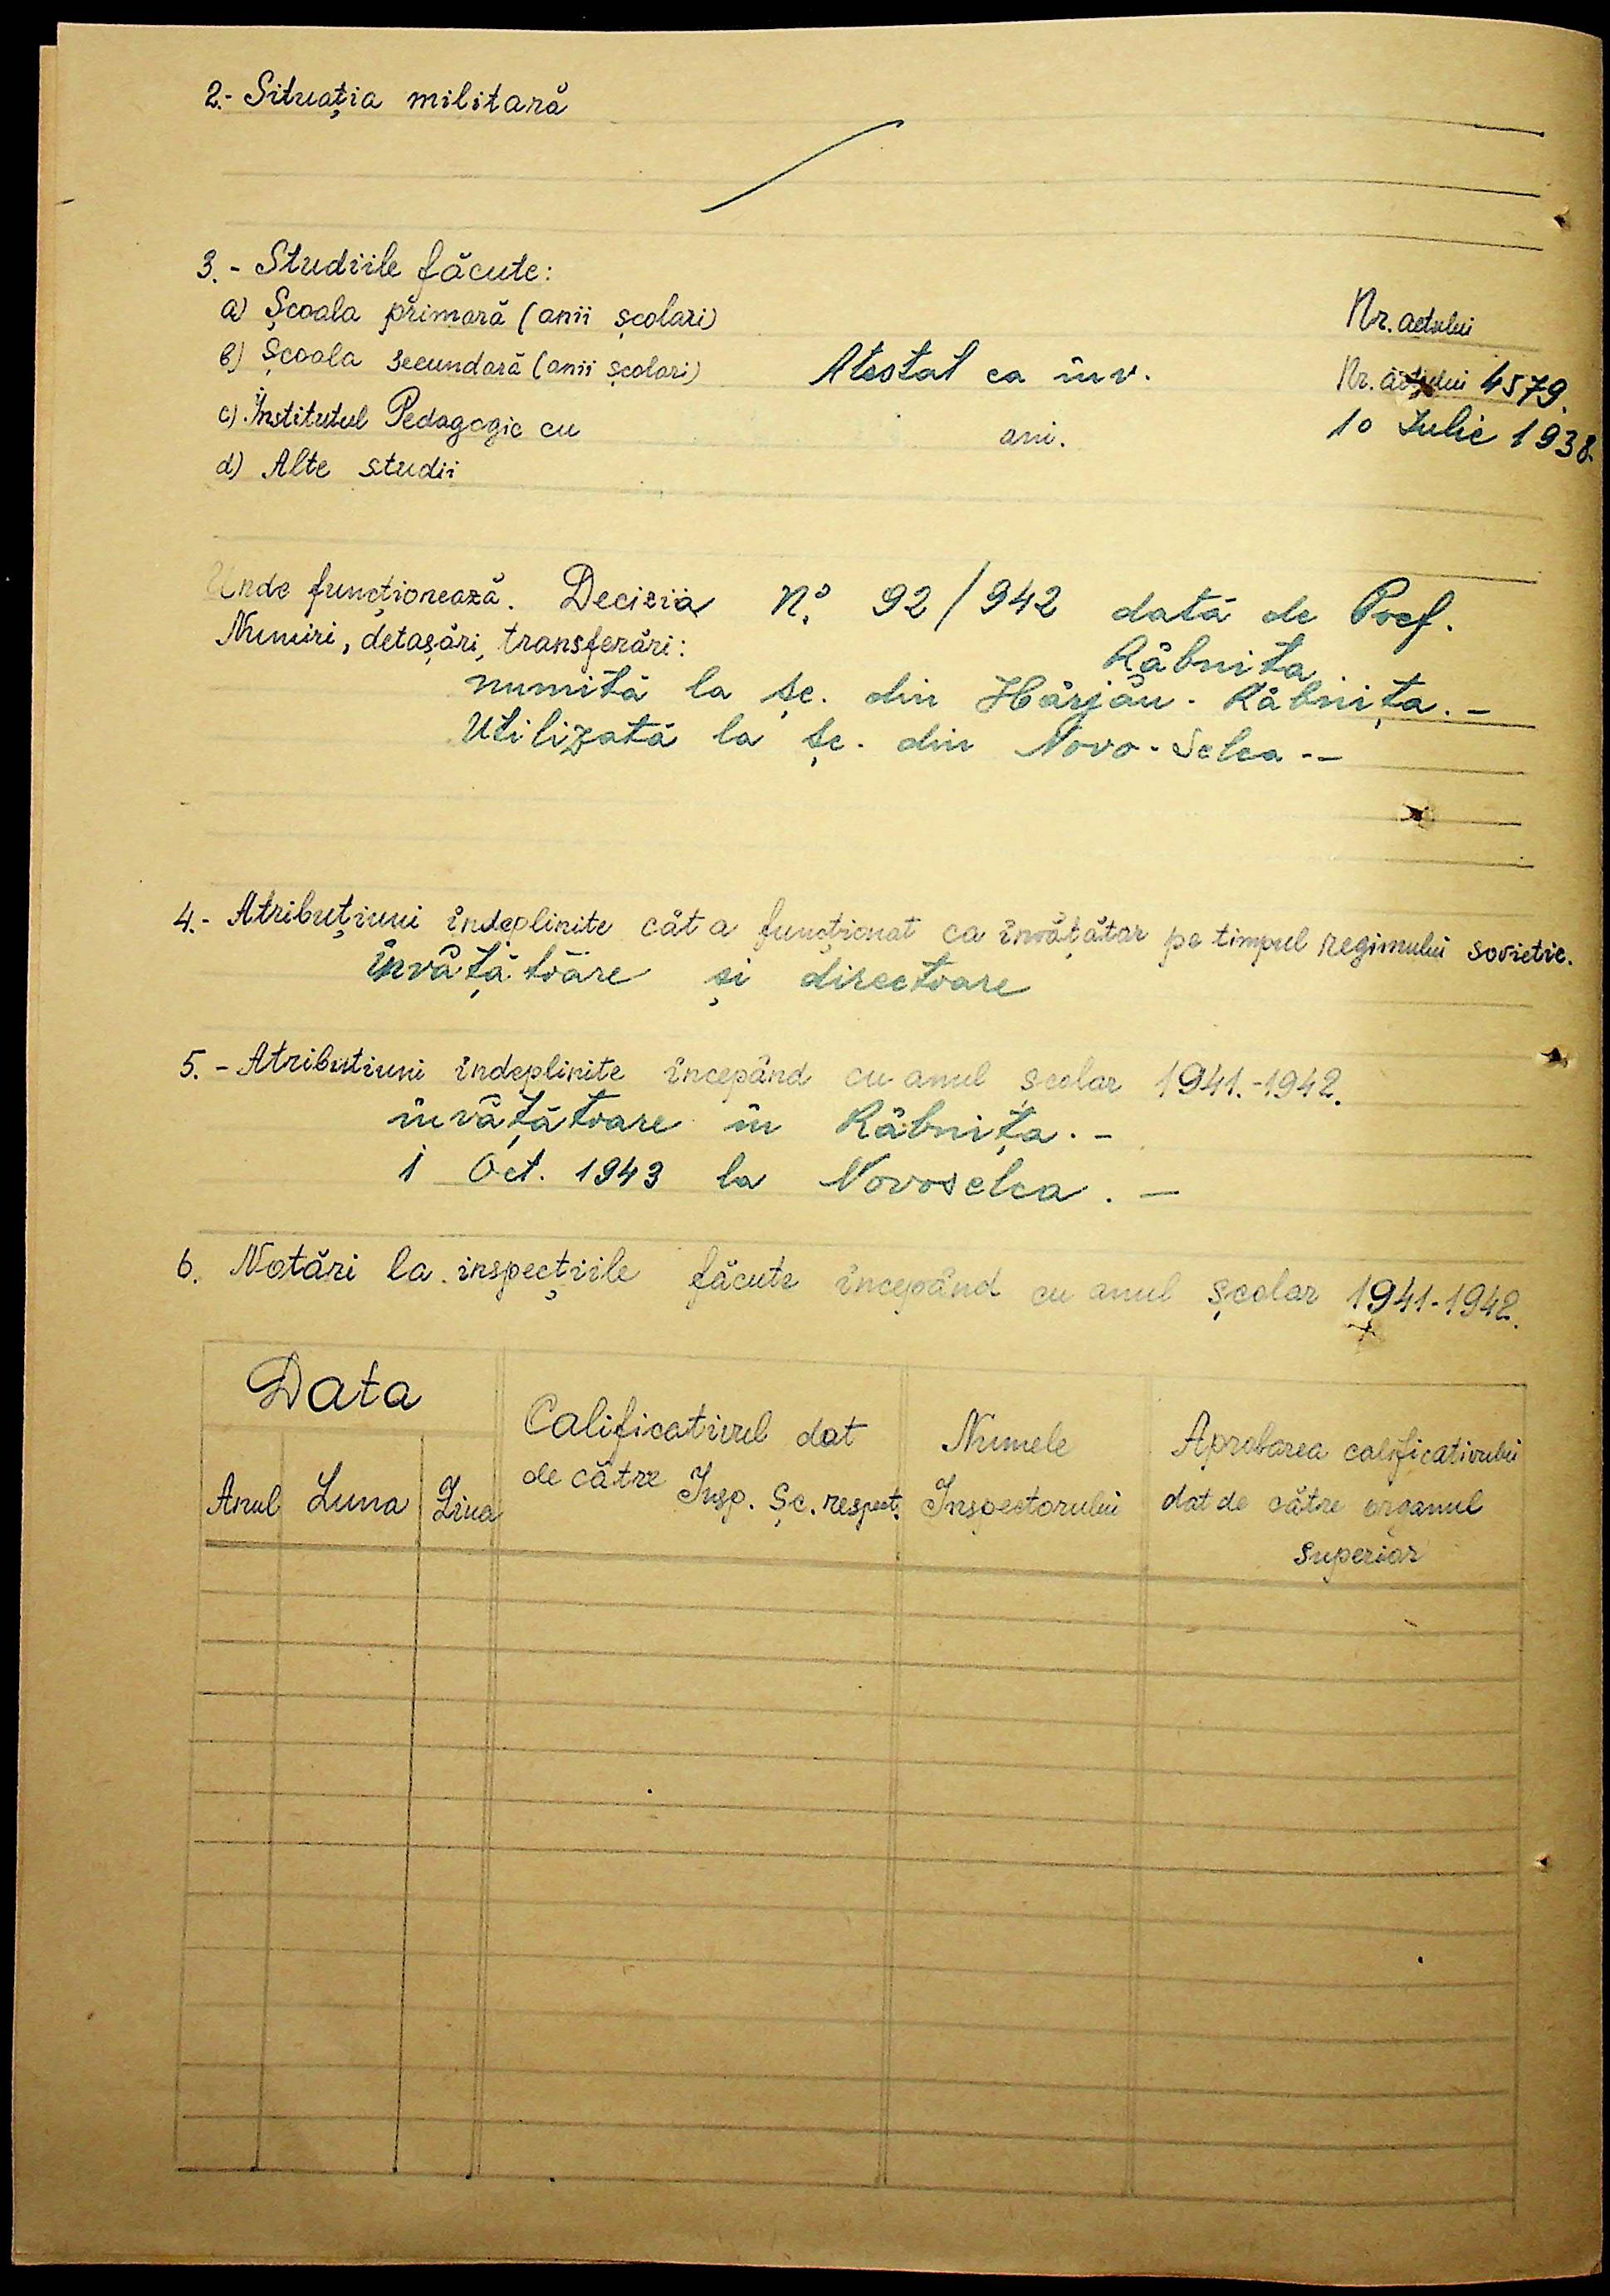 2.- Situația militară
3.- Studiile făcute:
a) Școala primară (anii școlari) Nr. actului
b) Școala secundară (anii școlari) Atestat ca înv. Nr. actului 4579.
c) Institutul Pedagogic cu ani. 10 Iulie 1938.
d) Alte studii
Unde funcționează. Decizia No. 92/942 dată de Pref.
Numiri, detașări, transferări: Râbnița
numită la șc. din Hârjău - Râbnița.-
Utilizată la șc. din Novo-Selca.-
4.- Atribuțiuni îndeplinite cât a funcționat ca învățător pe timpul regimului sovietic.
Învățătoare și directoare
5.- Atributiuni îndeplinite începând cu anul școlar 1941.-1942.
învățătoare în Râbnița.-
1 Oct. 1943 la Novoselca.-
6. Notări la inspecțiile făcute începând cu anul școlar 1941-1942.
Data
Calificativul dat de către Insp. Șc. respect.
Numele Inspectorului
Aprobarea calificativului dat de către organul superior
Anul Luna Ziua